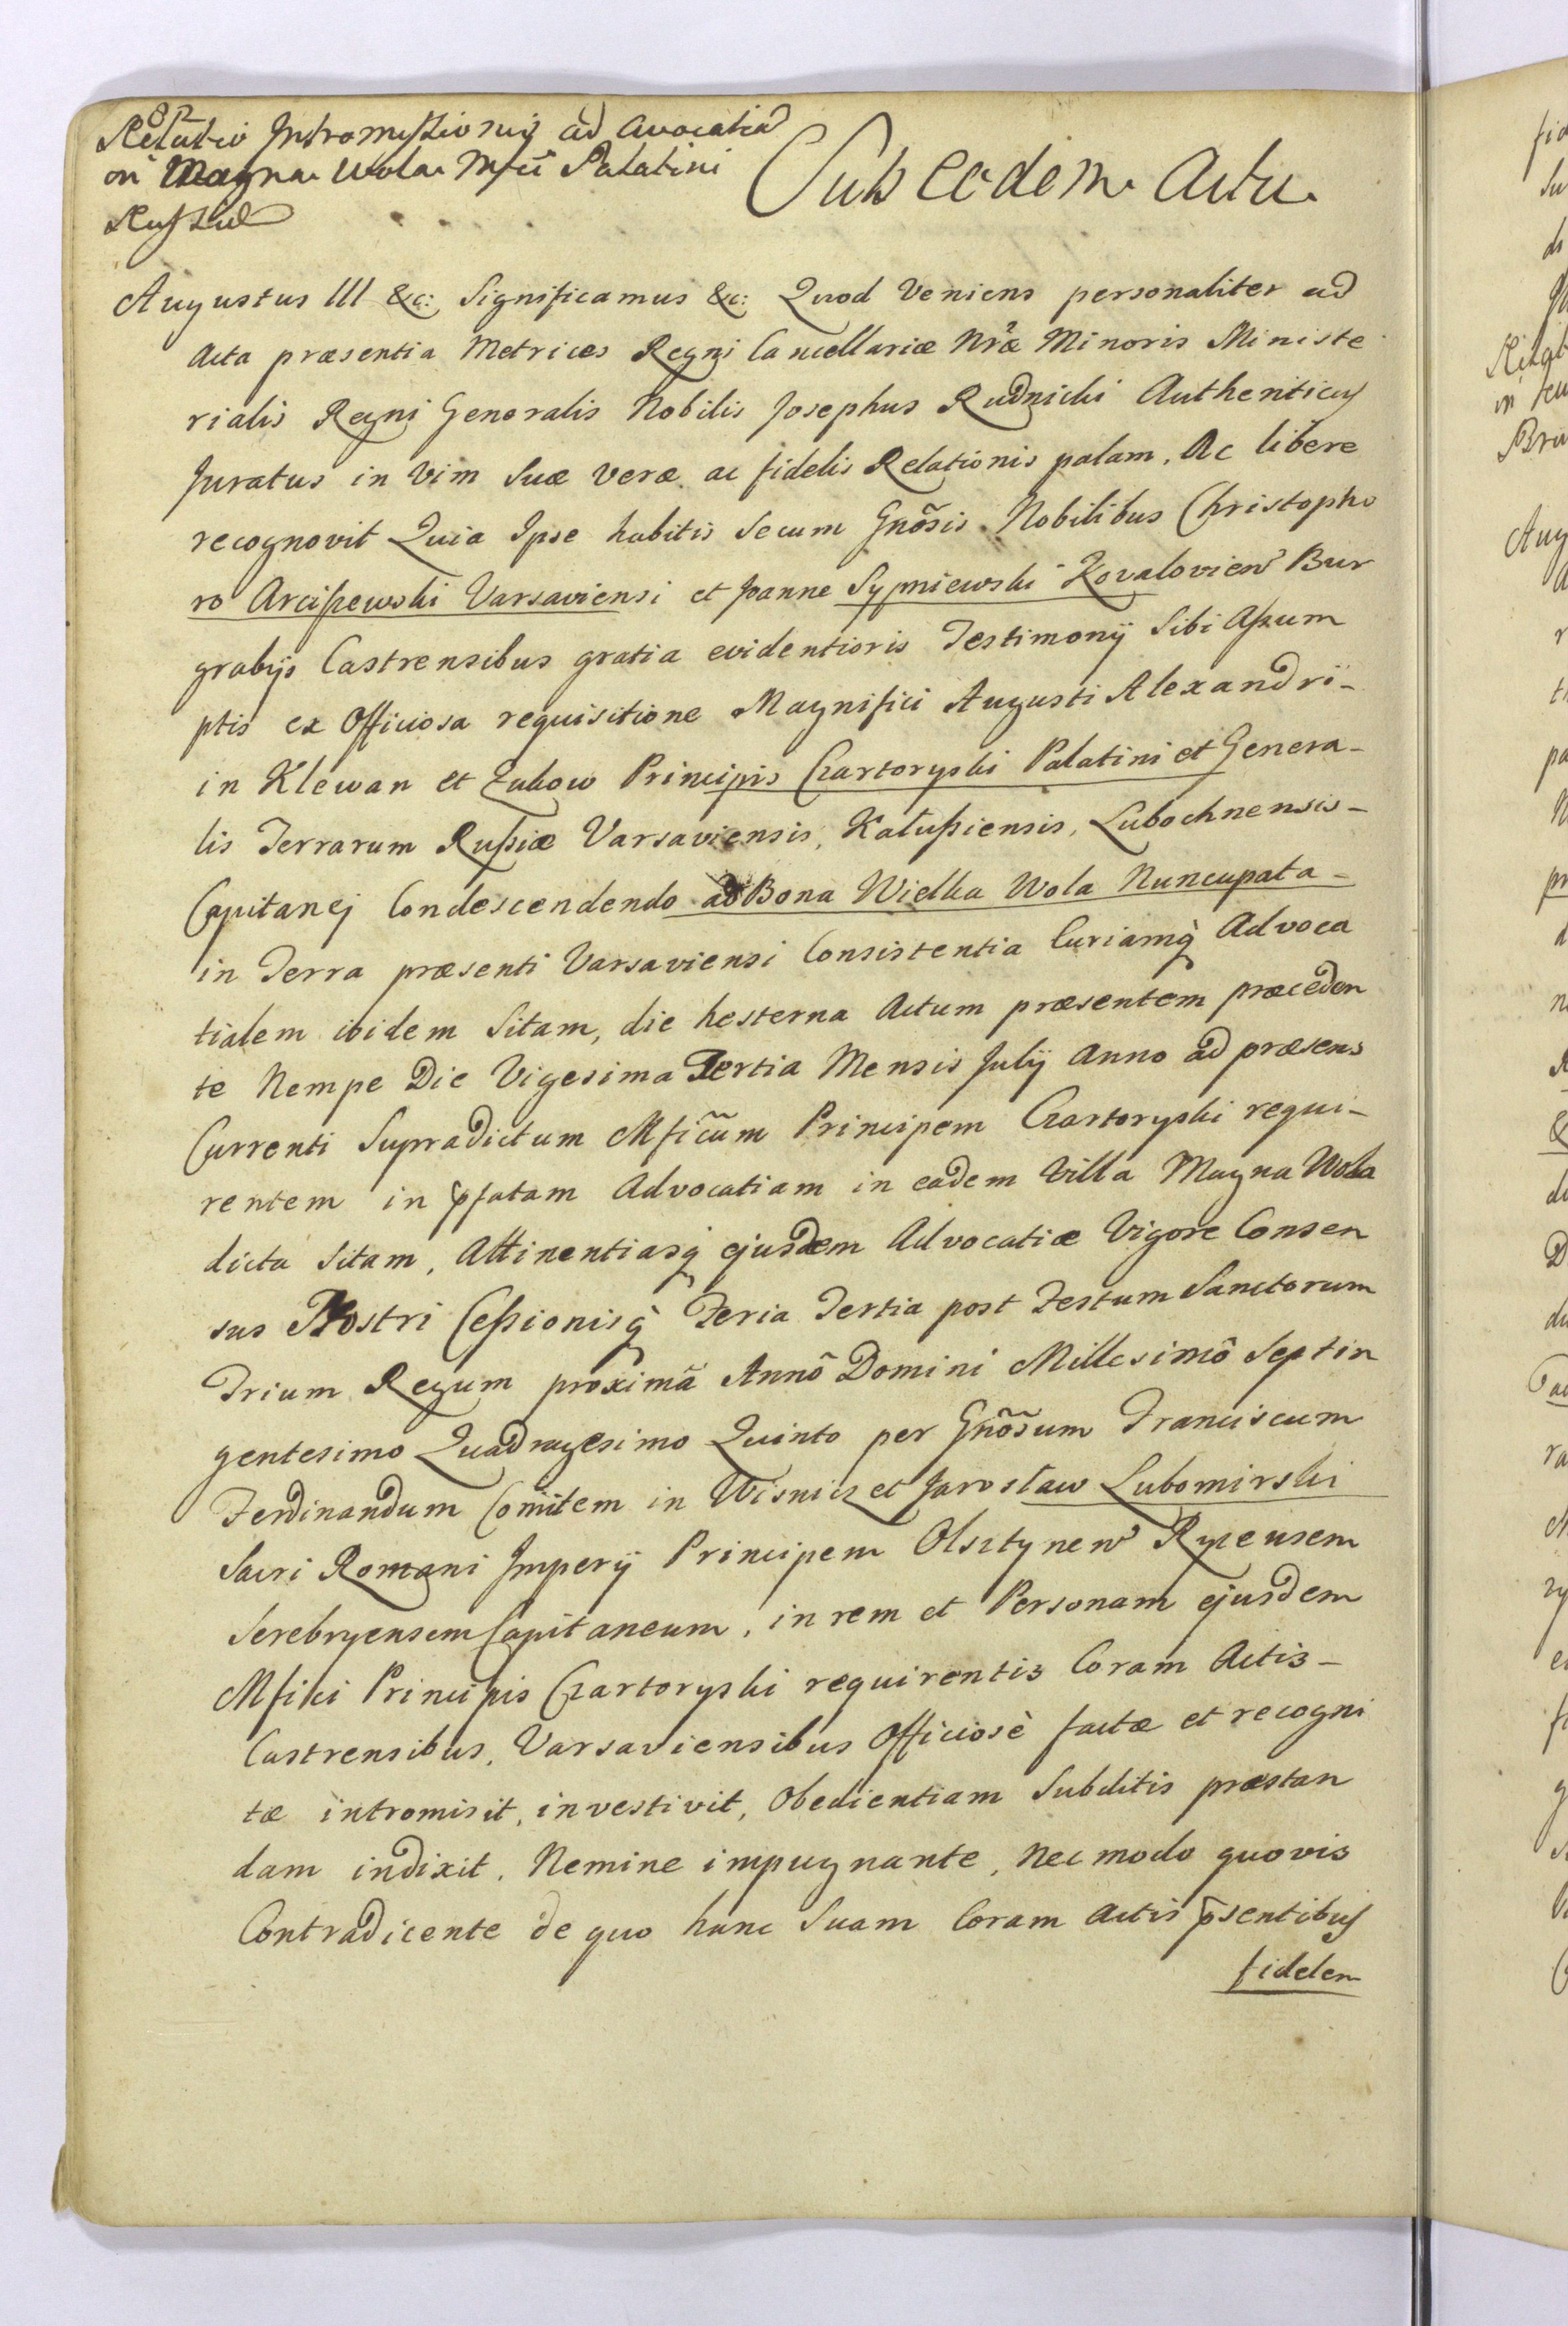 82
Relatio Intromissionis ad Avocatia
in Magna Wola Mfci Palatini
Russiæ
Sub eodem Actu
Augustus III &c: Significamus &c: Quod Veniens personaliter ad
Acta præsentia Metrices Regni Cancellariæ Nræ Minoris Ministe
rialis Regni Generalis Nobilis Josephus Rudnicki Authenticus
Juratus in Vim Suæ Veræ ac fidelis Relationis palam, Ac libere
recognovit Quia Ipse habitis Secum Gnõsis Nobilibus Christopho
ro Arcißewski Varsaviensi et Joanne Sypniewski Kovaloviens Bur
grabijs Castrensibus gratia evidentioris Testimonij Sibi Aßum
ptis ex Officiosa requisitione Magnifici Augusti Alexandri-
in Klewan et Zukow Principis Czartoryski Palatini et Genera-
lis Terrarum Rußiæ Varsaviensis, Kałußiensis, Lubochnensis-
Capitanej Condescendendo ad Bona Wielka Wola Nuncupata-
in Terra præsenti Varsaviensi Consistentia Curiamq̀ Advoca
tialem ibidem Sitam, die hesterna Actum præsentem præceden
te Nempe Die Vigesima Tertia Mensis Julij Anno ad præsens
Currenti Supradictum Mficũm Principem Czartoryski requi-
rentem in pfatam Advocatiam in eadem Villa Magna Wola
dicta Sitam, Attinentiasq̀ ejusdem Advocatiæ Vigore Consen
sus Nostri Ceßionisq̀ Feria Tertia post Festum Sanctorum
Trium Regum proximã Annô Domini Millesimô Septin
gentesimo Quadragesimo Quinto per Gnõsum Franciscum
Ferdinandum Comitem in Wisnicz et Jarosław Lubomirski
Sacri Romani Imperij Principem Olsztynens Rycensem
Serebryensem Capitaneum, in rem et Personam ejusdem
Mfici Principis Czartoryski requirentis Coram Actis-
Castrensibus, Varsaviensibus Officiosè factæ et recogni
tæ intromisit, investivit, Obedientiam Subditis præstan
dam indixit, Nemine impugnante, Nec modo quovis
Contradicente de quo hanc Suam Coram Actis p̃sentibus
fidelem